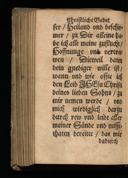 Christliche Gebet
ser / Heiland und beschir-
mer / zu Dir alleine ha-
be ich alle meine zuflucht /
Hoffnunge und vertra-
wen / Dieweil dann
dein gnediger wille ist /
wenn und wie offte ich
den Leib JEsu Christi
deines lieben Sohns / zu
mir nemen werde / das
mich wirdiglich darzu
durch rew und leide aller
meiner Sünde und misse-
thaten bereite / das mir
dadurch